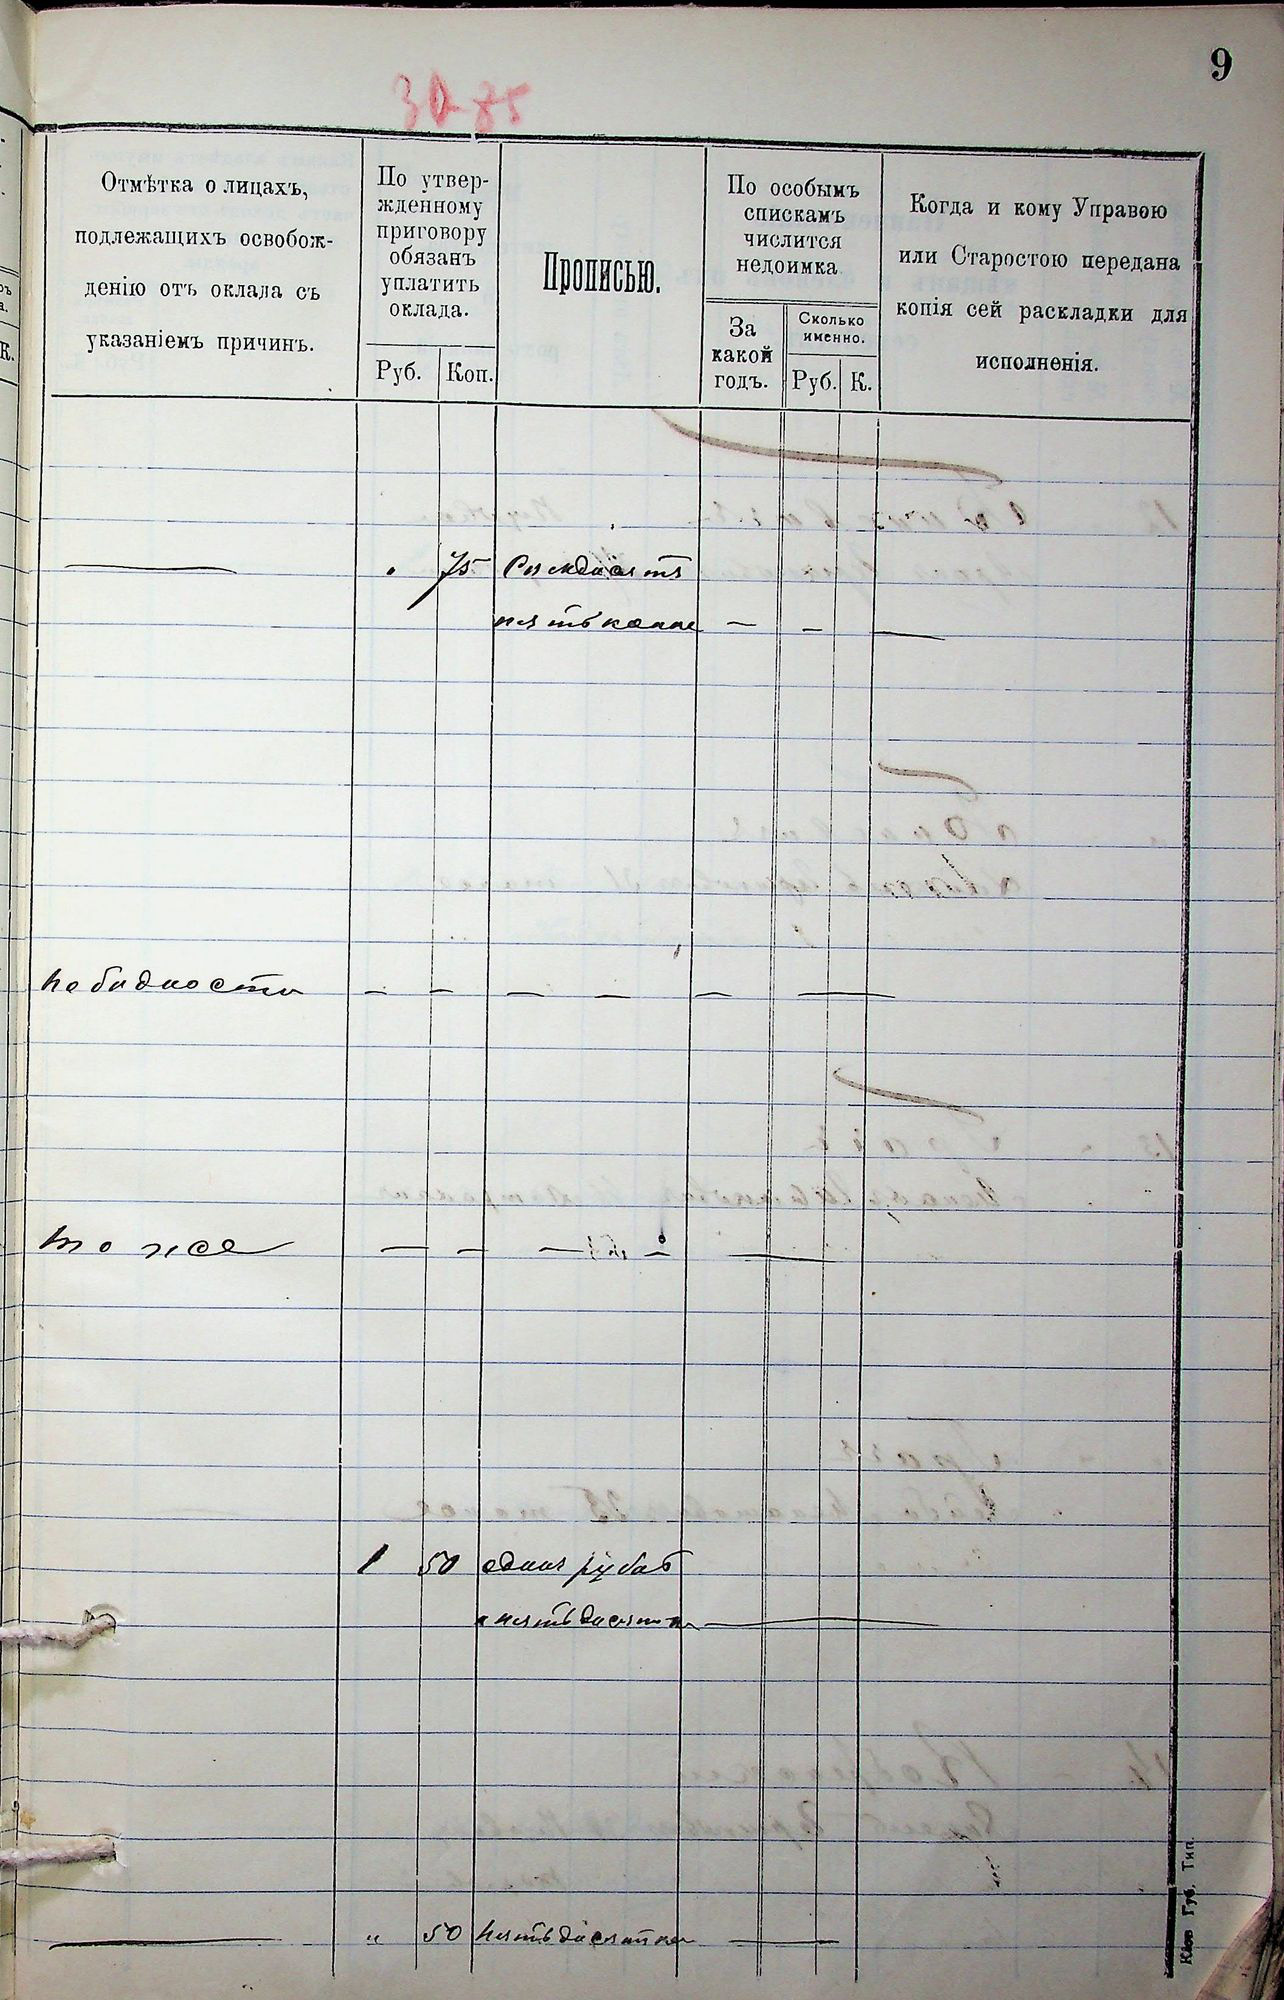 9
30-85
Отмѣтка о лицахъ,
подлежащихъ освобож-
денію отъ оклала съ
указаніемъ причинъ.
По утвер-
жденному
приговору
обязанъ
уплатить
оклада.
Руб. Коп.
Прописью.
По особымъ
спискамъ
числится
недоимка
За
какой
годъ.
Сколько
именно.
Руб. К.
Когда и кому Управою
или Старостою передана
копія сей раскладки для
исполненія.
— " 75 Семьдесятъ
пять копее — — —
По бѣдности — — — — — —
то же — — — — —
1 50 одинъ рубль
пятьдесятъ к —
— " 50 пятьдесят ко —
Кіев Губ. Тип.